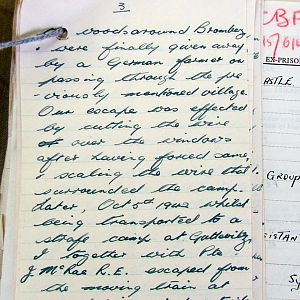 3
woods around Bromberg
& were finally given away
by a German farmer on
passing through the pre-
viously mentioned village.
Our escape was effected
by cutting the wire
over the windows
after having forced same,
& scaling the wire that
surrounded the camp.
Later, Oct 5th 1942 whilst
being transported to a
strafe camp at
I together with Pte.
J. McRae R.E. escaped from
the moving train at
EX-PRISON
GROUP
ISTAN